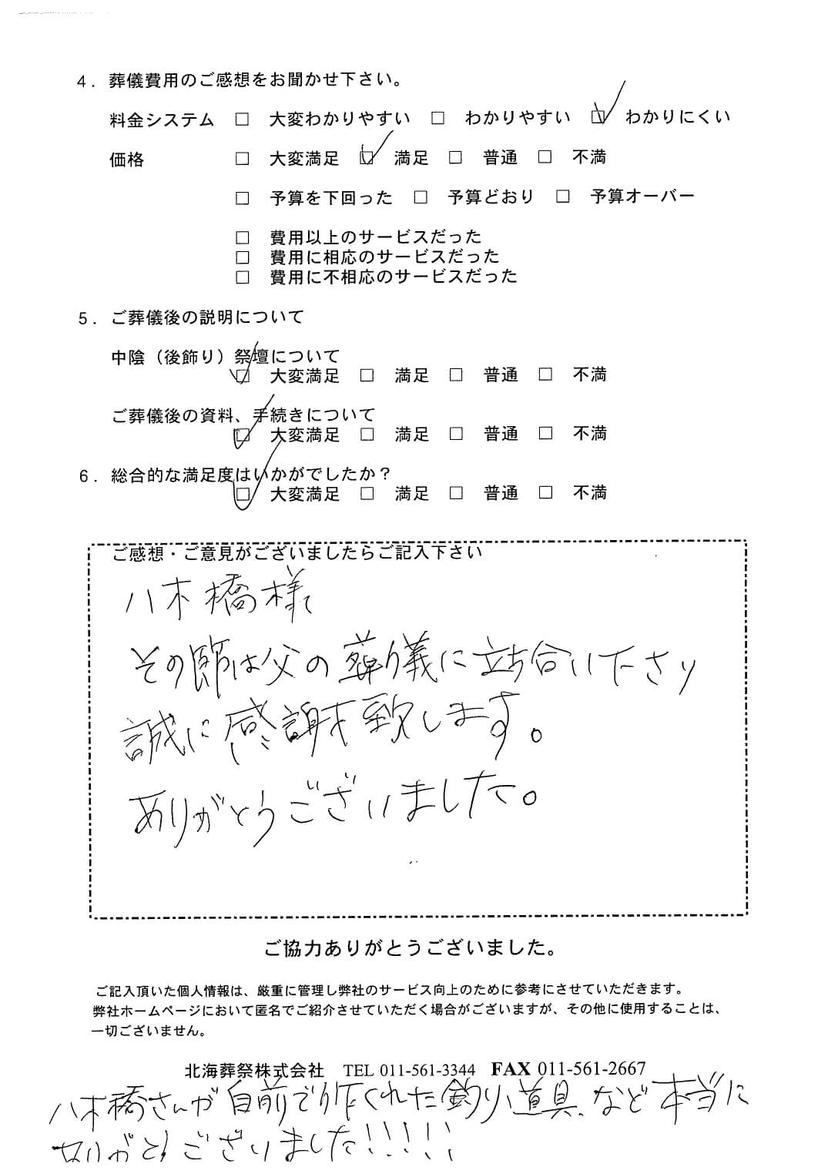 ４．葬儀費用のご感想をお聞かせ下さい。
料金システム □ 大変わかりやすい □ わかりやすい ☑ わかりにくい
価格 □ 大変満足 ☑ 満足 □ 普通 □ 不満
□ 予算を下回った □ 予算どおり □ 予算オーバー
□ 費用以上のサービスだった
□ 費用に相応のサービスだった
□ 費用に不相応のサービスだった
５．ご葬儀後の説明について
中陰（後飾り）祭壇について
☑ 大変満足 □ 満足 □ 普通 □ 不満
ご葬儀後の資料、手続きについて
☑ 大変満足 □ 満足 □ 普通 □ 不満
６．総合的な満足度はいかがでしたか？
☑ 大変満足 □ 満足 □ 普通 □ 不満
ご感想・ご意見がございましたらご記入下さい
八木橋様
その節は父の葬儀に立ち合い下さり
誠に感謝致します。
ありがとうございました。
ご協力ありがとうございました。
ご記入頂いた個人情報は、厳重に管理し弊社のサービス向上のために参考にさせていただきます。
弊社ホームページにおいて匿名でご紹介させていただく場合がございますが、その他に使用することは、
一切ございません。
北海葬祭株式会社 TEL 011-561-3344 FAX 011-561-2667
八木橋さんが自前で作くれた釣り道具、など本当に
ありがとうございました!!!!!